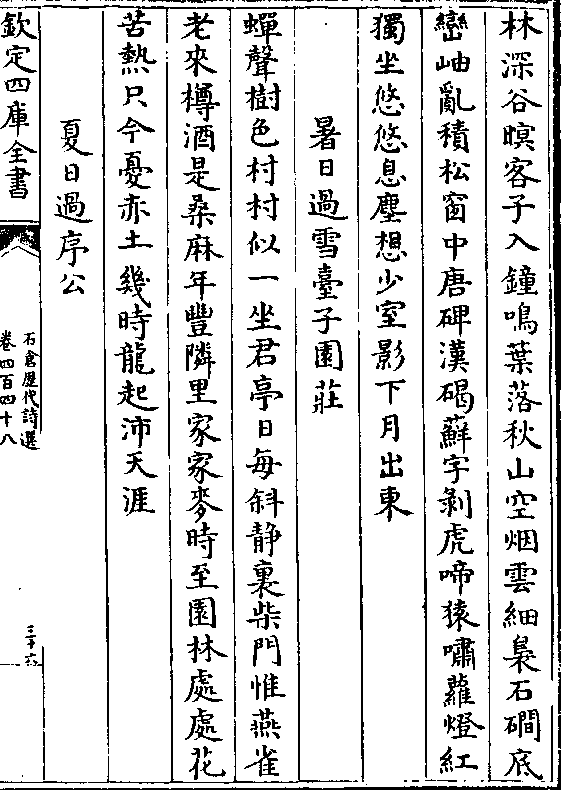 林深谷暝客子入鐘鳴葉落秋山空烟雲細裊石磵底
巒岫亂積松窗中唐碑漢碣蘚字剝虎啼猿嘯蘿燈紅
獨坐悠悠息塵想少室影下月出東
暑日過雪臺子園莊
蟬聲樹色村村似一坐君亭日每斜静裏柴門惟燕雀
老來樽酒是桑麻年豐隣里家家麥時至園林處處花
苦熱只今憂赤土幾時龍起沛天涯
夏日過序公
欽定四庫全書
石倉歷代詩選
卷四百四十八
三十六